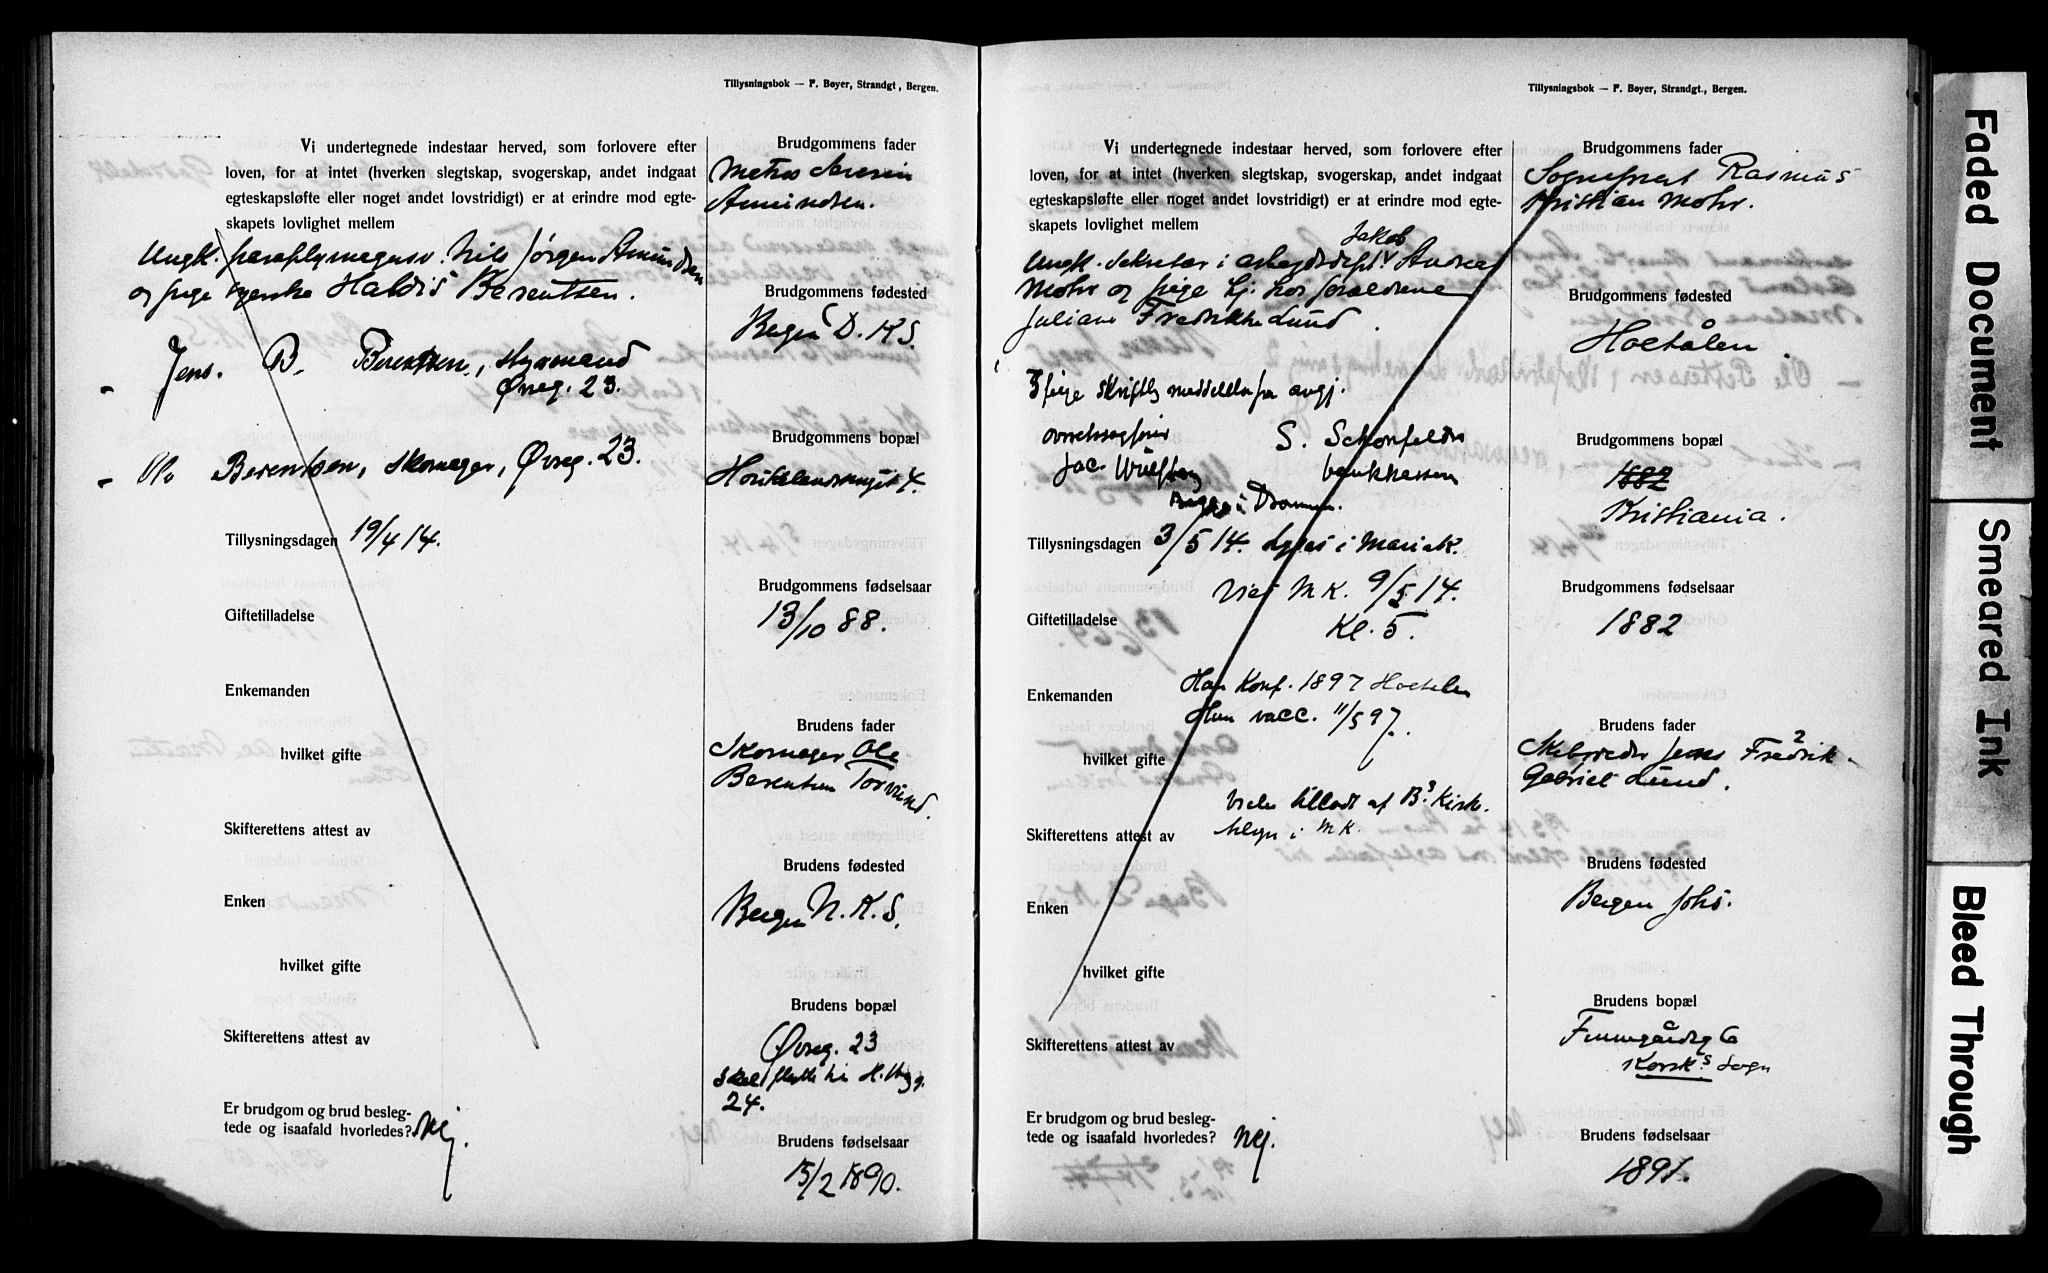 Tillysningsbok — F. Bøyer, Strandgt., Bergen.
Vi undertegnede indestaar herved, som forlovere efter
loven, for at intet (hverken slegtskap, svogerskap, andet indgaat
egteskapsløfte eller noget andet lovstridigt) er at erindre mod egte-
skapets lovlighet mellem
Ungk. paraplymagersv. Nils Jørgen Amundsen
og pige syerske Haldis Berentsen.
Jens. B. Berentsen, Styrmand
Øvreg. 23.
Ole Berentsen, skomager, Øvreg. 23.
Tillysningsdagen 19/4 14.
Giftetilladelse
Enkemanden
hvilket gifte
Skifterettens attest av
Enken
hvilket gifte
Skifterettens attest av
Er brudgom og brud besleg-
tede og isaafald hvorledes? Nej.
Brudgommens fader
Metus Severin
Amundsen.
Brudgommens fødested
Bergen D. K S.
Brudgommens bopæl
4.
Brudgommens fødselsaar
13/10 88.
Brudens fader
Skomager Ole
Berentsen Torvund.
Brudens fødested
Bergen N. K. S.
Brudens bopæl
Øvreg. 23
skal flytte til
24.
Brudens fødselsaar
15/2 1890.
Tillysningsbok — F. Bøyer, Strandgt., Bergen.
Vi undertegnede indestaar herved, som forlovere efter
loven, for at intet (hverken slegtskap, svogerskap, andet indgaat
egteskapsløfte eller noget andet lovstridigt) er at erindre mod egte-
skapets lovlighet mellem
Jakob
Ungk. Sekretær i arbeidsdept. V Andreas
Mohr og pige hj. hos forældrene
Juliane Fredrikke Lund.
ifølge skriftlig meddelelse fra angj.
overretssagfører S. Schonfelder
Jac. Wulfsberg bankkasserer
Begge i Drammen.
Tillysningsdagen 3/5 14. Lyses i Mariak.
Viet M K. 9/5 14.
Giftetilladelse Kl. 5.
Han Konf. 1897 Hoetalen
Enkemanden
Hun vacc. 11/5 97.
hvilket gifte
Vielse tilladt af B.s Kirke-
Skifterettens attest av
i M K.
Enken
hvilket gifte
Skifterettens attest av
Er brudgom og brud besleg-
tede og isaafald hvorledes? Nej.
Brudgommens fader
Sogneprest Rasmus
Kristian Mohr.
Brudgommens fødested
Hoetålen
Brudgommens bopæl
1882
Kristiania.
Brudgommens fødselsaar
1882
Brudens fader
Skibsreder Jens Fredrik 2
Gabriel Lund.
Brudens fødested
Bergen Johs.
Brudens bopæl
Finnegårdsg 6
Korsk.s Sogn
Brudens fødselsaar
1891.
Faded Document
Smeared Ink
Bleed Through